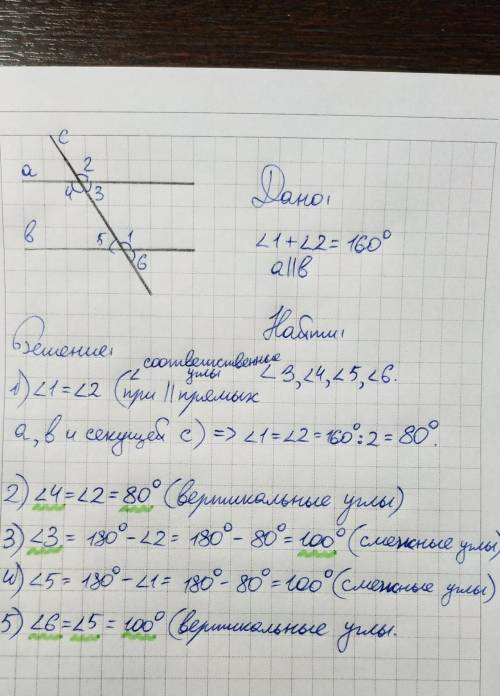 c
a
2
4
3
Дано:
в
5
1
6
∠1+∠2=160°
a||в
Найти:
∠3,∠4,∠5,∠6.
Решение:
1) ∠1=∠2 (∠ соответственные углы при || прямых
а, в и секущей с) => ∠1=∠2=160°:2=80°.
2) ∠4=∠2=80° (вертикальные углы)
3) ∠3=180°-∠2=180°-80°=100° (смежные углы)
4) ∠5=180°-∠1=180°-80°=100° (смежные углы)
5) ∠6=∠5=100° (вертикальные углы.